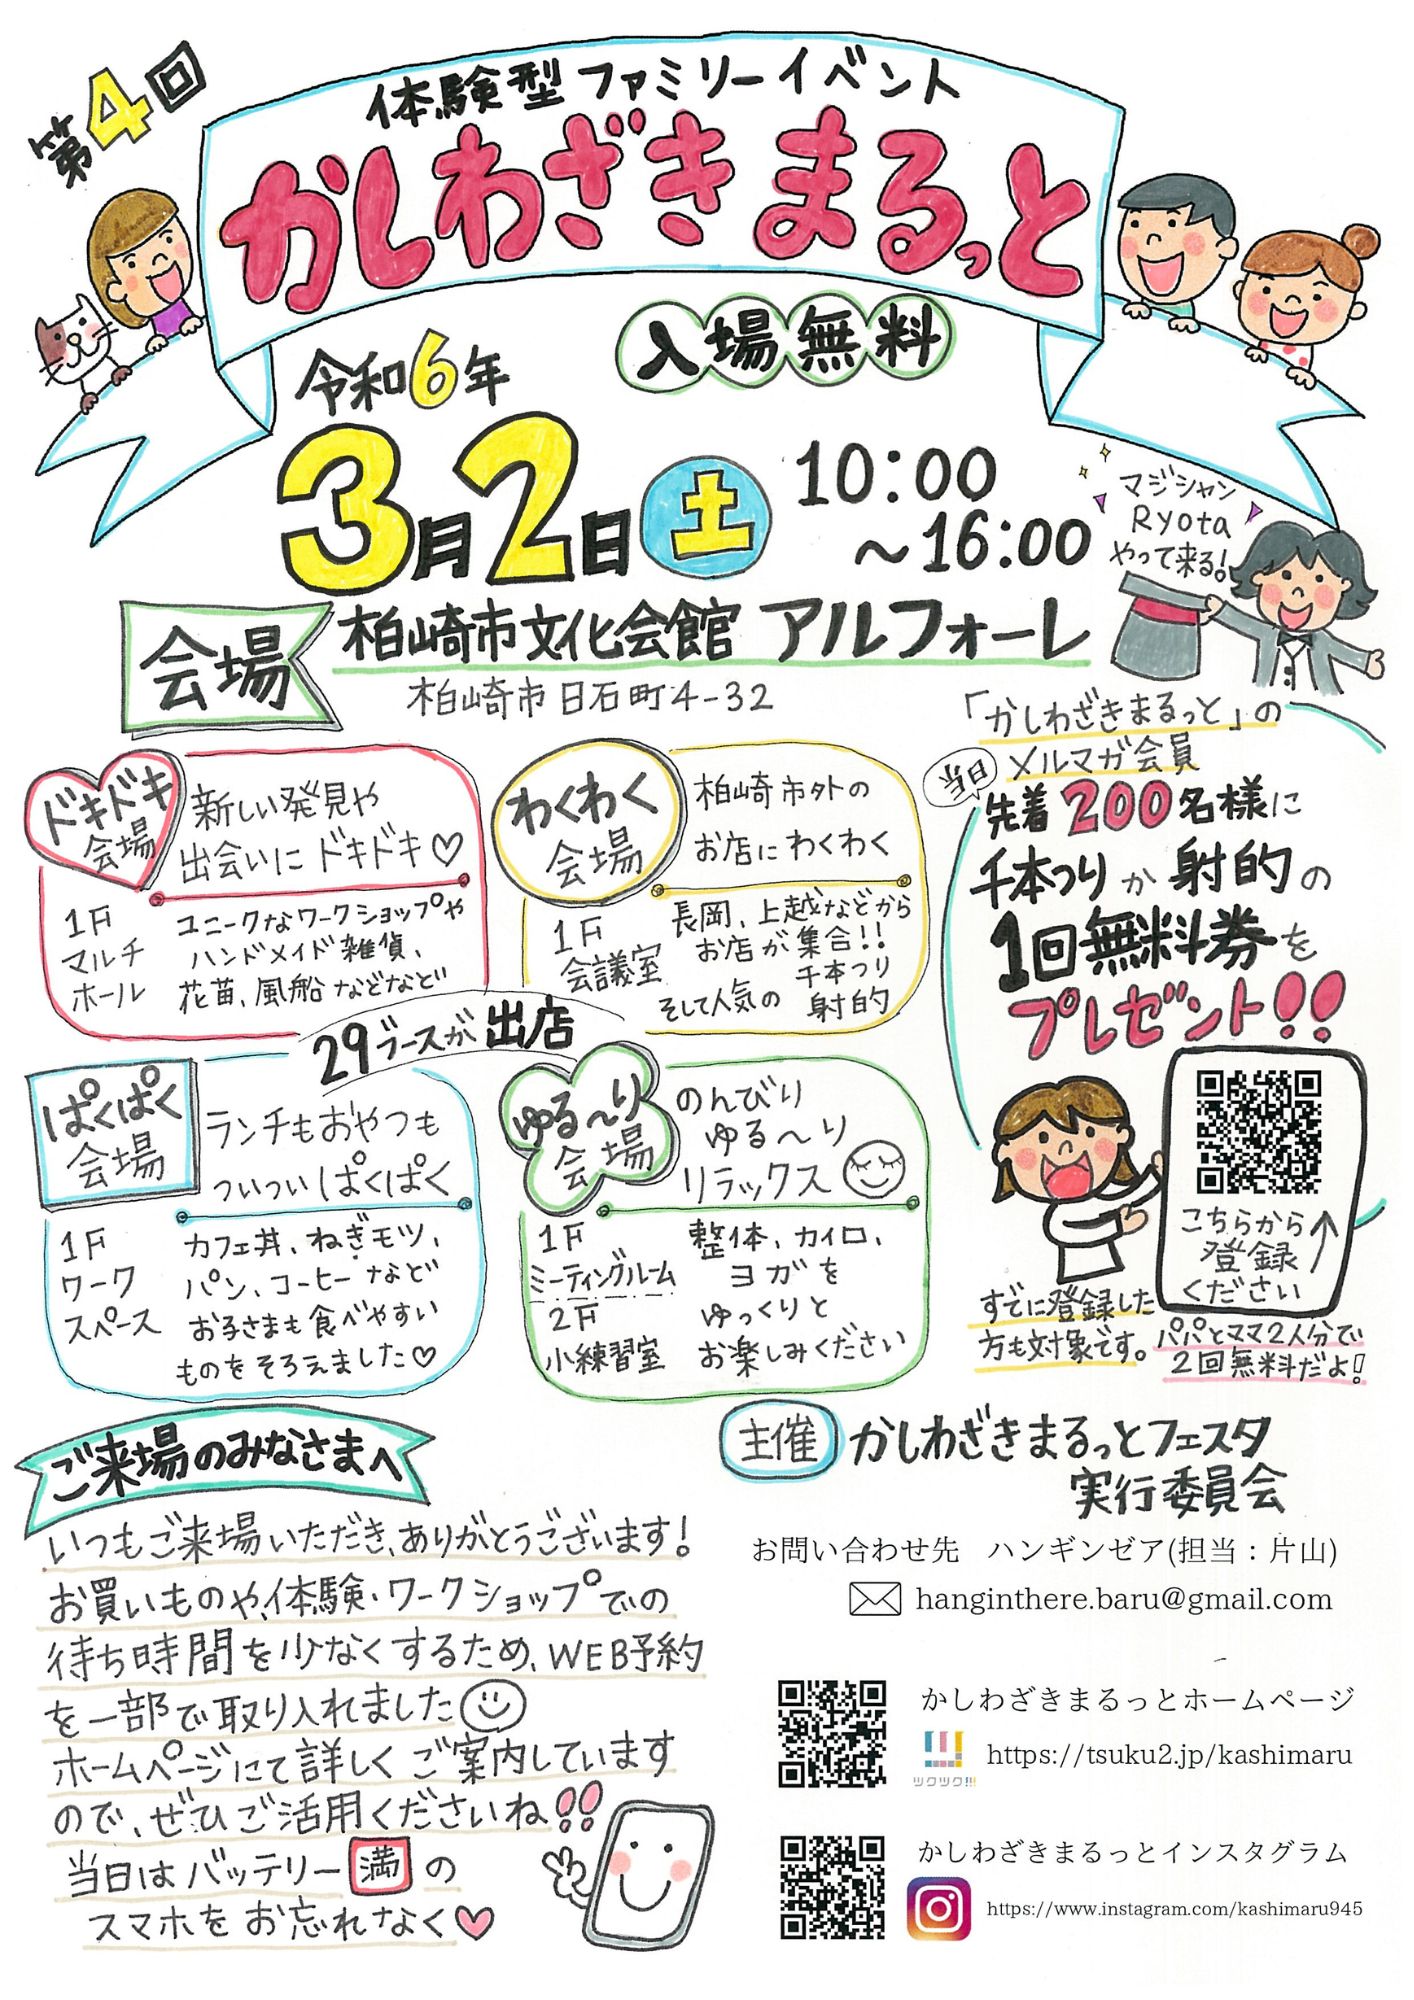 第4回
体験型ファミリーイベント
かしわざきまるっと
入場無料
令和6年
3月2日 土
10:00
～16:00
マジシャン
Ryota
やって来る!
会場
柏崎市文化会館 アルフォーレ
柏崎市日石町4-32
ドキドキ
会場
新しい発見や
出会いにドキドキ♡
1F
マルチ
ホール
ユニークなワークショップや
ハンドメイド雑貨、
花苗、風船などなど
わくわく
会場
柏崎市外の
お店にわくわく
1F
会議室
長岡、上越などから
お店が集合!!
そして人気の
千本つり
射的
29ブースが出店
ぱくぱく
会場
ランチもおやつも
ついついぱくぱく
1F
ワーク
スペース
カフェ丼、ねぎモツ、
パン、コーヒーなど
お子さまも食べやすい
ものをそろえました♡
ゆる～り
会場
のんびり
ゆる～り
リラックス
1F
ミーティングルーム
2F
小練習室
整体、カイロ、
ヨガを
ゆっくりと
お楽しみください
「かしわざきまるっと」の
メルマガ会員
先着200名様に
千本つりか射的の
1回無料券を
プレゼント!!
こちらから
登録
ください
すでに登録した
方も対象です。
パパとママ2人分で
2回無料だよ!
ご来場のみなさまへ
いつもご来場いただき、ありがとうございます!
お買いものや、体験・ワークショップでの
待ち時間を少なくするため、WEB予約
を一部で取り入れました
ホームページにて詳しくご案内しています
ので、ぜひご活用くださいね!!
当日はバッテリー満の
スマホをお忘れなく♡
主催
かしわざきまるっとフェスタ
実行委員会
お問い合わせ先 ハンギンゼア(担当：片山)
hanginthere.baru@gmail.com
かしわざきまるっとホームページ
ツクツク!!!
https://tsuku2.jp/kashimaru
かしわざきまるっとインスタグラム
https://www.instagram.com/kashimaru945